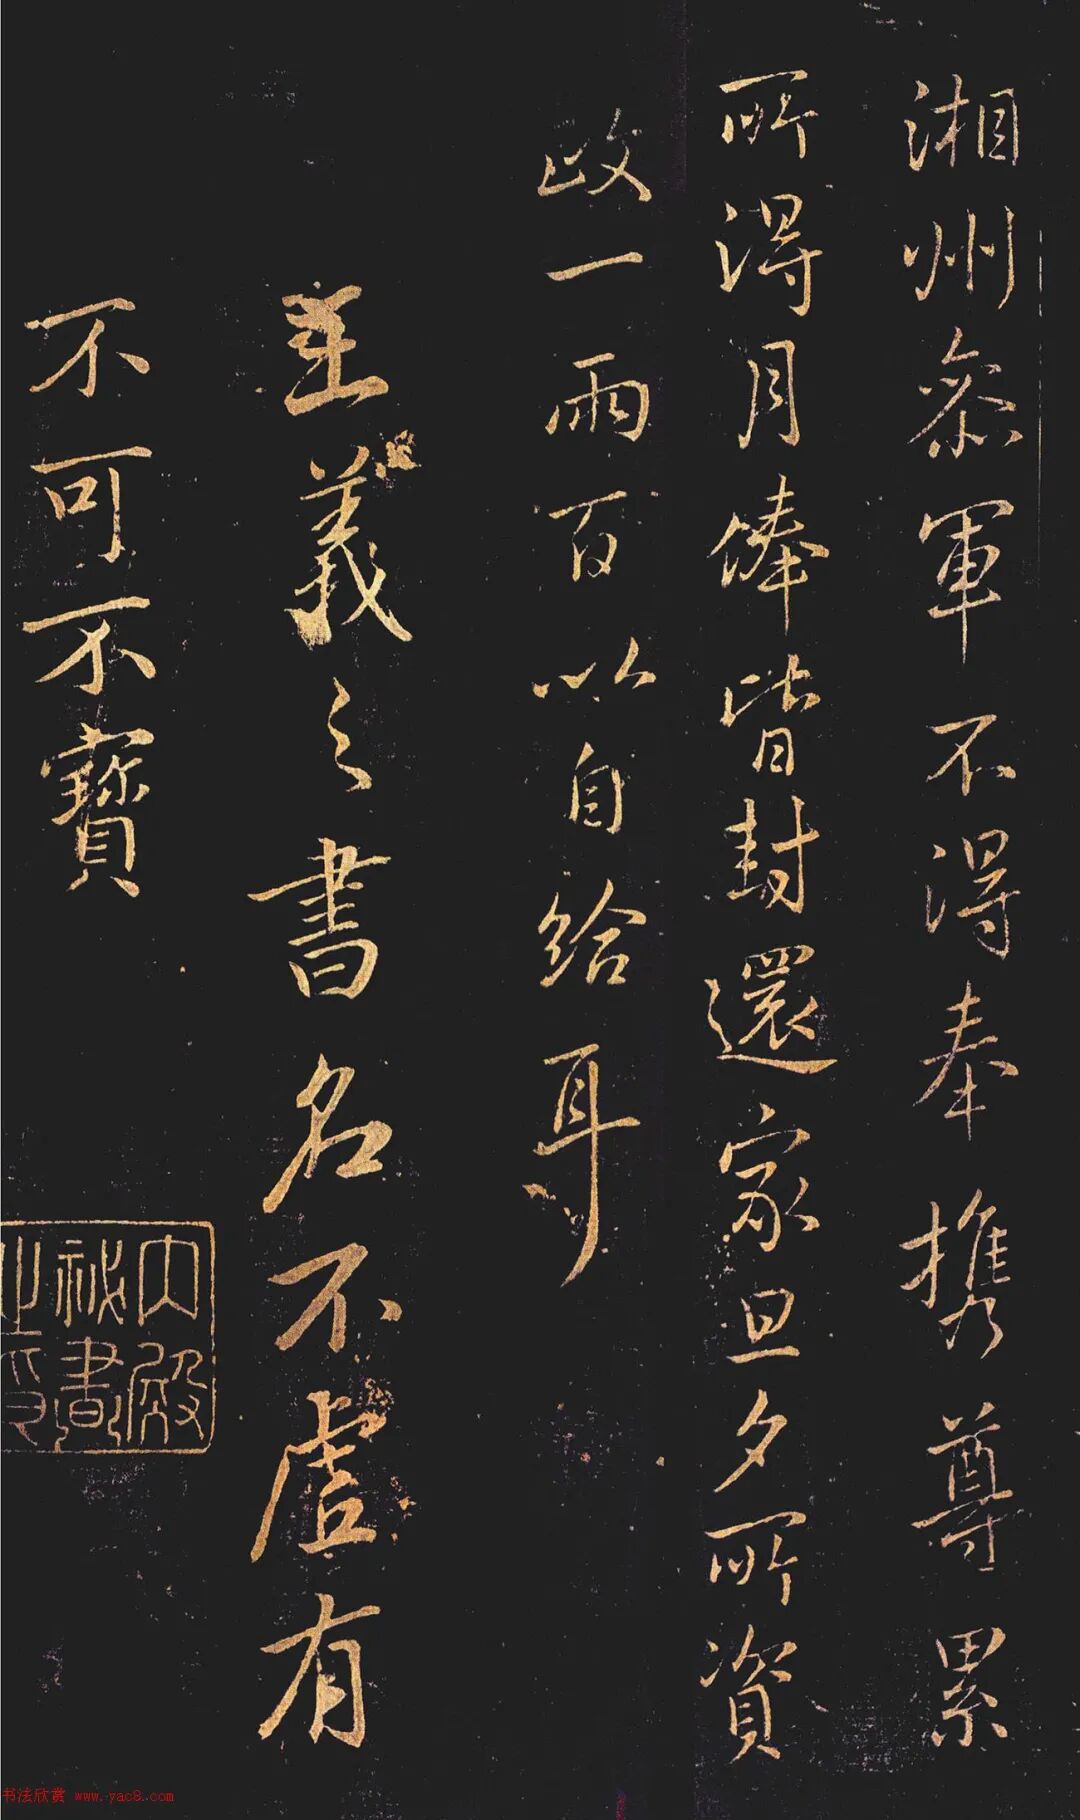 湘州叅軍不得奉攜尊累
所得月俸皆封還家旦夕所資
政一兩百以自給耳
王羲之書名不虛有
不可不寶
內殿
祕書
之印
书法欣赏 www.yac8.com